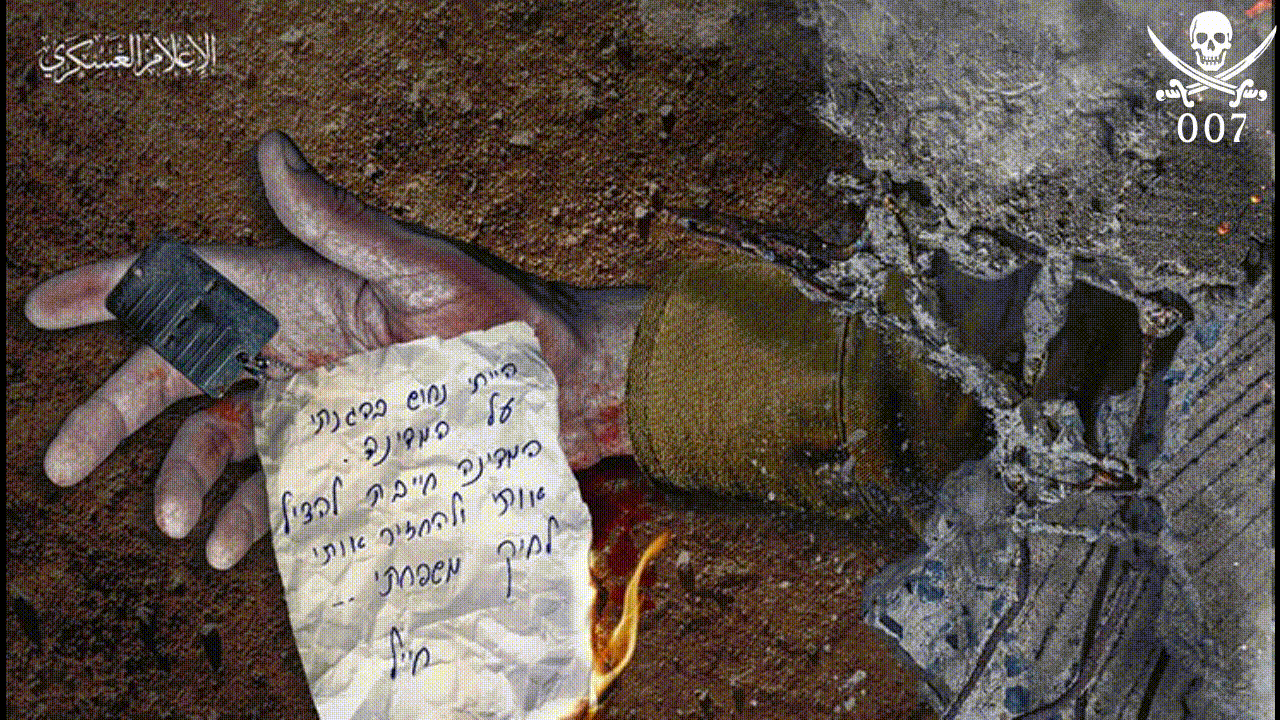 الإعلام العسكري
007
הייתי נחוש בהגנתי
על המדינה.
המדינה חייבת להציל
אותי ולהחזיר אותי
לחיק משפחתי..
חייל